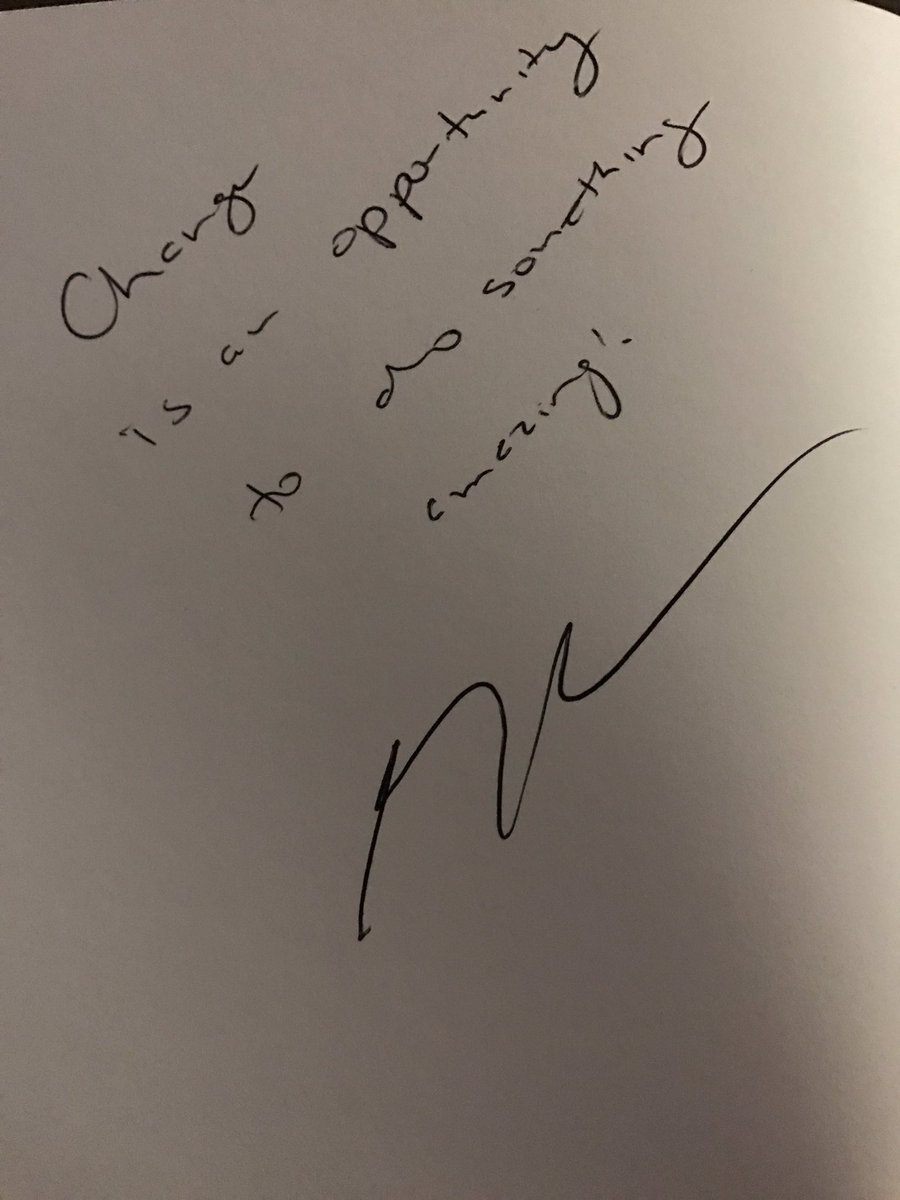 Change
is an opportunity
to do something
amazing!